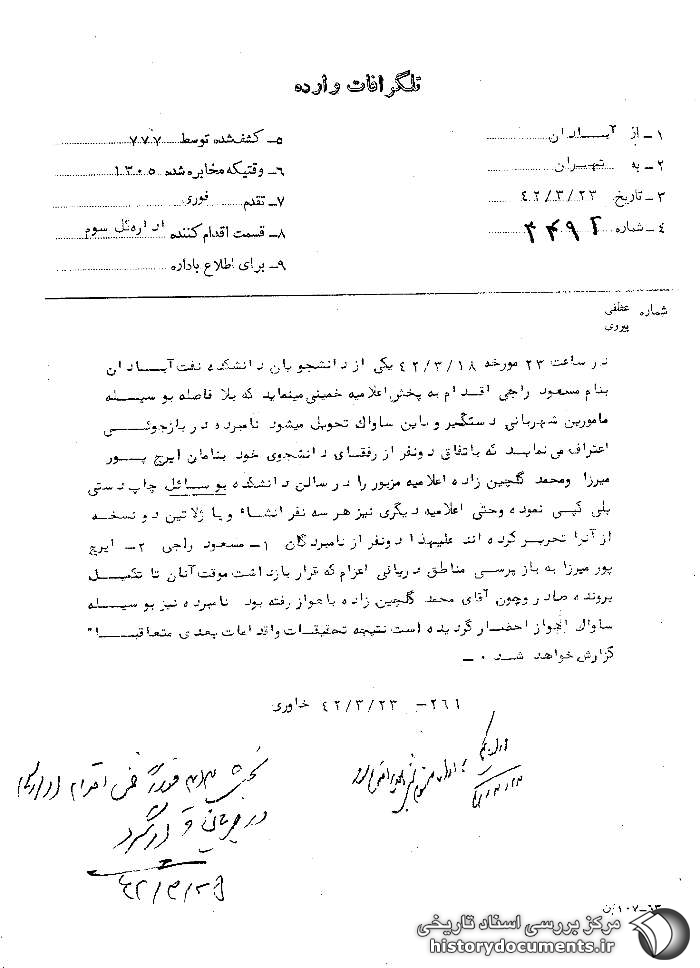 تلگرافات وارده
۱ـ از آبادان
۲ـ به تهران
۳ـ تاریخ ۴۲/۳/۲۳
۴ـ شماره
۵ـ کشف شده توسط ۷۷۷
۶ـ وقتیکه مخابره شده ۱۳۰۵
۷ـ تقدم فوری
۸ـ قسمت اقدام کننده اداره کل سوم
۹ـ برای اطلاع باداره
شماره عطفی
پیروی
در ساعت ۲۳ مورخه ۴۲/۳/۱۸ یکی از دانشجویان دانشکده نفت آبادان
بنام مسعود راجی اقدام به پخش اعلامیه خمینی مینماید که بلا فاصله بوسیله
مامورین شهربانی دستگیر و باین ساواک تحویل میشود نامبرده در بازجوئی
اعتراف می نماید که باتفاق دونفر از رفقای دانشجوی خود بنامان ایرج پور
میرزا ومحمد گلچین زاده اعلامیه مزبور را در سالن دانشکده بوسائل چاپ دستی
پلی کپی نموده وحتی اعلامیه دیگری نیز هر سه نفر انشاء و با ژلاتین دو نسخه
از آنرا تحریر کرده اند علیهذا دونفر از نامبردگان ۱ـ مسعود راجی ۲ـ ایرج
پور میرزا به باز پرسی مناطق دریائی اعزام که قرار بازداشت موقت آنان تا تکمیل
پرونده صادر وچون آقای محمد گلچین زاده باهواز رفته بود نامبرده نیز بوسیله
ساواک اهواز احضار گردیده است نتیجه تحقیقات واقدامات بعدی متعاقبا"
گزارش خواهد شد ۰ـ
۲۶۱ـ ۴۲/۳/۲۳ خاوری
بخش ۳۱۲ فوراً ضمن اقدام
در جریان قرار گیرد
۴۲/۳/۲۵
۶۳ـ۱۰۷ ن
مرکز بررسی اسناد تاریخی
historydocuments.ir